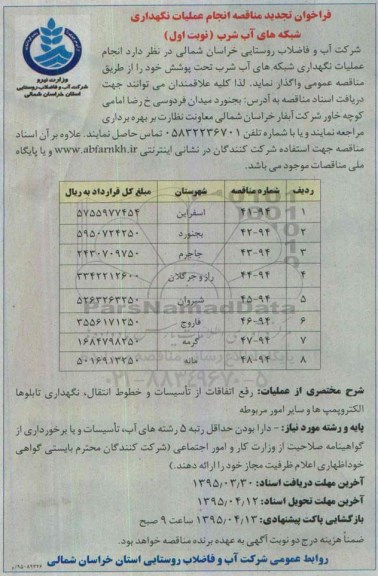 فراخوان تجدید مناقصه انجام عملیات نگهداری
شبکه های آب شرب (نوبت اول)
وزارت نیرو
شرکت آب و فاضلاب روستایی
استان خراسان شمالی
شرکت آب و فاضلاب روستایی خراسان شمالی در نظر دارد انجام
عملیات نگهداری شبکه های آب شرب تحت پوشش خود را از طریق
مناقصه عمومی واگذار نماید. لذا کلیه علاقمندان می توانند جهت
دریافت اسناد مناقصه به آدرس: بجنورد میدان فردوسی خ رضا امامی
کوچه خاور شرکت آبفار خراسان شمالی معاونت نظارت بر بهره برداری
مراجعه نمایند و یا با شماره تلفن ۰۵۸۳۲۲۳۶۷۰۱ تماس حاصل نمایند. علاوه بر آن اسناد
مناقصه جهت استفاده شرکت کنندگان در نشانی اینترنتی www.abfarnkh.ir و یا پایگاه
ملی مناقصات موجود می باشد.
ردیف شماره مناقصه شهرستان مبلغ کل قرارداد به ریال
۱ ۴۱-۹۴ اسفراین ۵۷۵۵۹۷۷۴۵۴
۲ ۴۲-۹۴ بجنورد ۵۹۵۰۷۲۴۲۵۰
۳ ۴۳-۹۴ جاجرم ۲۴۳۰۷۰۹۷۵۰
۴ ۴۴-۹۴ راز و جرگلان ۳۳۴۲۲۱۲۶۰۰
۵ ۴۵-۹۴ شیروان ۵۲۶۳۲۶۳۲۵۰
۶ ۴۶-۹۴ فاروج ۳۵۵۶۱۷۱۲۵۰
۷ ۴۷-۹۴ گرمه ۱۶۸۴۷۹۸۲۵۰
۸ ۴۸-۹۴ مانه ۵۰۱۶۹۱۳۲۵۰
ParsNamadData
۰۲۱-۸۸۳۴۹۶۷۰-۵
شرح مختصری از عملیات: رفع اتفاقات از تأسیسات و خطوط انتقال، نگهداری تابلوها
الکتروپمپ ها و سایر امور مربوطه
پایه و رشته مورد نیاز: - دارا بودن حداقل رتبه ۵ رشته های آب، تأسیسات و یا برخورداری از
گواهینامه صلاحیت از وزارت کار و امور اجتماعی (شرکت کنندگان محترم بایستی گواهی
خوداظهاری اعلام ظرفیت مجاز خود را ارائه دهند.)
آخرین مهلت دریافت اسناد: ۱۳۹۵/۰۳/۳۰
آخرین مهلت تحویل اسناد: ۱۳۹۵/۰۴/۱۲
بازگشایی پاکت پیشنهادی: ۱۳۹۵/۰۴/۱۳ ساعت ۹ صبح
ضمناً هزینه درج دو نوبت آگهی به عهده برنده مناقصه خواهد بود.
روابط عمومی شرکت آب و فاضلاب روستایی استان خراسان شمالی